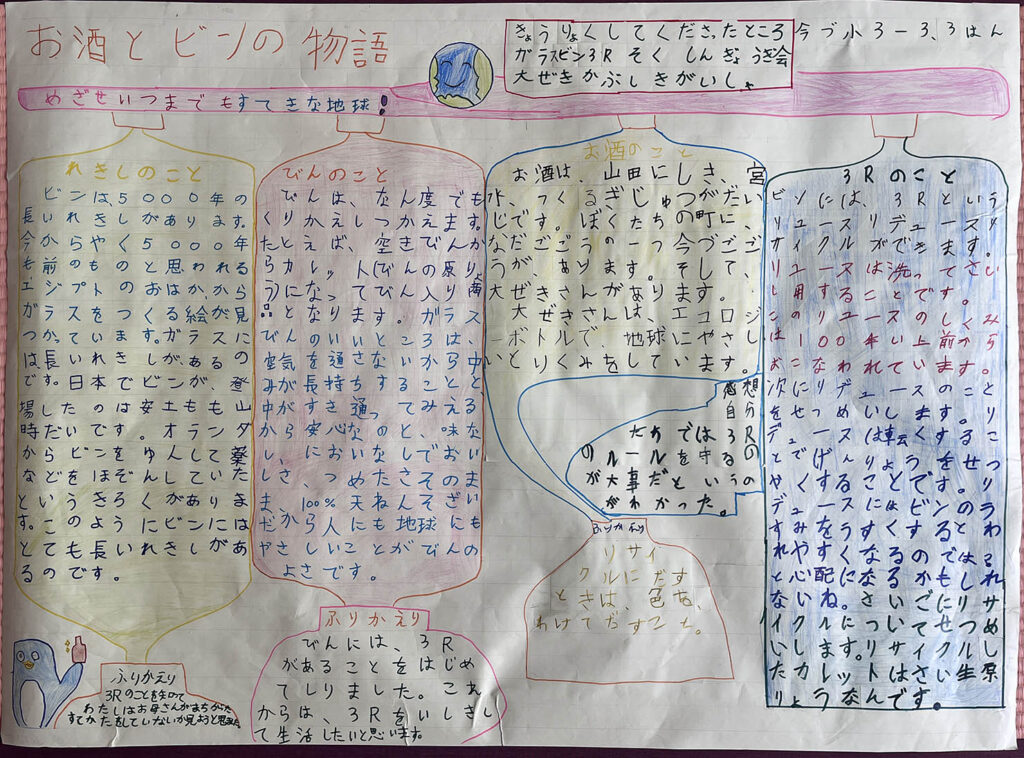 お酒とビンの物語
きょうりょくしてくださったところ
ガラスビン3Rそくしんきょうぎ会
大ぜきかぶしきがいしゃ
今づ小3-3、3はん
めざせいつまでもすてきな地球!
れきしのこと
ビンは5000年の
長いれきしがあります。
今からやく5000年
も前のものと思われる
エジプトのおはか、から
ガラスをつくる絵が見
つかっています。ガラスに
は長いれきしがあるの
です。日本でビンが、登
場したのは安土もも山
時だいです。オランダ
からビンをゆんして薬
などをほぞんしていた
というきろくがありま
す。このようにビンには
とても長いれきしがあ
るのです。
ふりかえり
3Rのことを
わたしはお母さんがまちがった
すてかたをしていないか見ようと思った
びんのこと
びんは、なん度でも
くりかえしつかえます。
たとえば、空きびんか
らカレット(びんの原りょ
うになってびん入り商
品となります。ガラス
びんのいいところは、
空気を通さないから中
みが長持ちすることと、
中がすき通ってみえる
から安心なのと、味な
い、においなしでおい
しさ、つめたさそのま
ま、100%天ねんそざい
だから人にも地球にも
やさしいことがびんの
よさです。
ふりかえり
びんには、3R
があることをはじめ
てしりました。これ
からは、3Rをいしきし
て生活したいと思います。
お酒のこと
お酒は、山田にしき、宮
水、つくるぎじゅつがだい
じです。ぼくたちの町に、
なだごごうの一つ今づごご
うが、あります。そして、
大ぜきさんがあります。
大ぜきさんは、エコロジ
ーボトルで、地球にやさし
いとりくみをしています。
感想
自分
たちでは3Rの
のルールを守る
が大事だというの
がわかった。
ふりかえり
リサイ
クルにだす
ときは、色ね、
わけてだすこと。
3Rのこと
ビンには、3Rという
リュースリデュースリ
サイクルができます。
リユースは洗ってさい
し用することです。
このリユースのしくみ
は100年い上前から
おこなわれています。
次にリデュースのこと
をせつめいします。リ
デュースは軽くするこ
とでげんりょうをせつ
やくすることです。リ
デュースにはビンのう
すみをうすくするとわ
れやすくなるのではる
と心配になるかもしれ
ないね。さいごにリサ
イクルについてせつめ
いします。リサイクルし
たカレットはさい生原
りょうなんです。